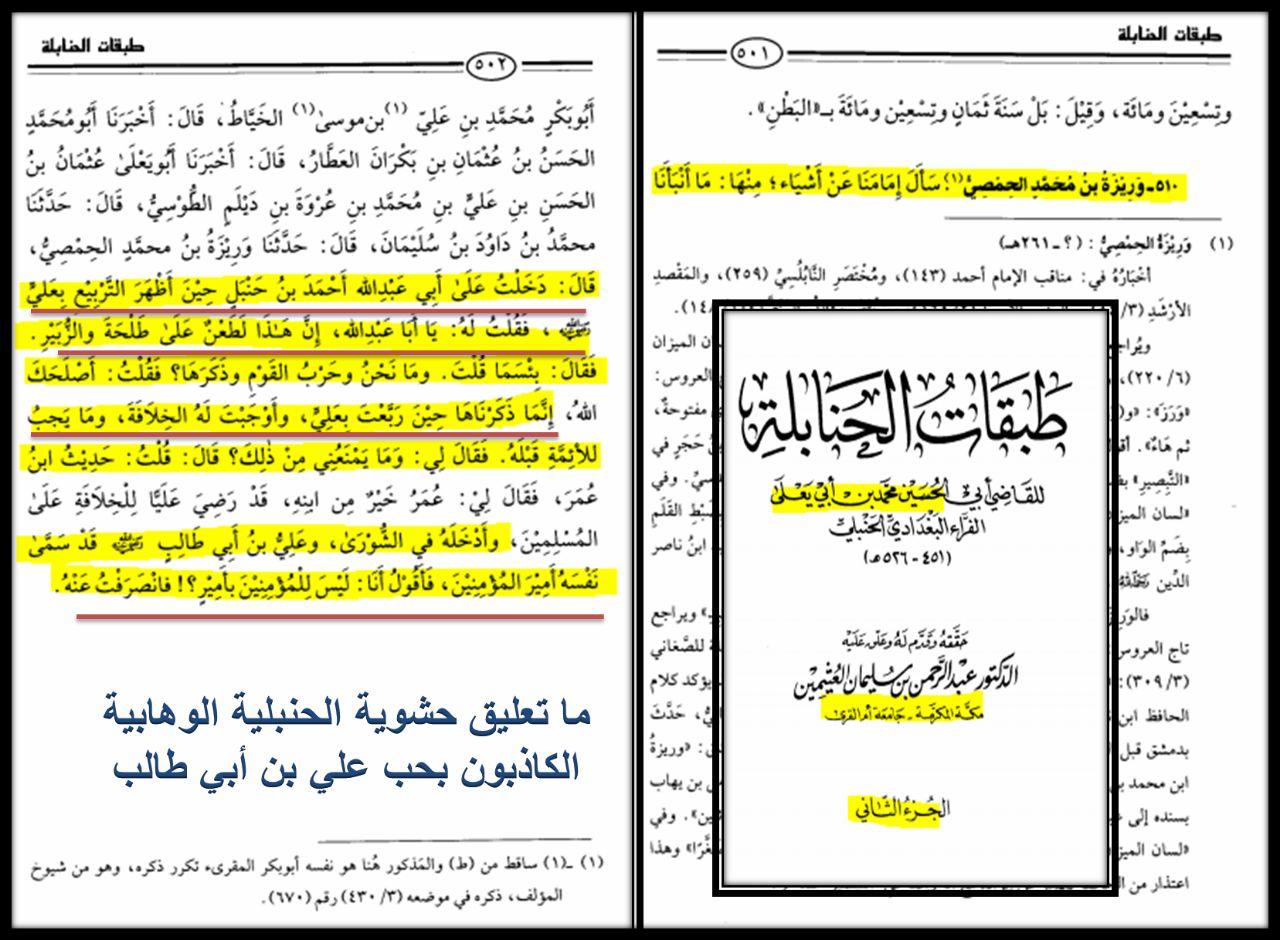 طبقات الحنابلة
٥٠١
وتِسْعِيْنَ ومَائَة، وَقِيْلَ: بَلْ سَنَةَ ثَمَانٍ وتِسْعِيْن ومَائَةَ بـ«البَطْنِ».
٥١٠-وَرِيْزَةُ بنُ مُحَمَّدٍ الحِمْصِيُّ(١): سَأَلَ إِمَامَنَا عَنْ أَشْيَاء؛ مِنْهَا: مَا أَنْبَأَنَا
(١) وَرِيْزَةُ الحِمْصِيُّ: (؟ - ٢٦١هـ)
أَخْبَارُهُ في: مناقب الإمام أحمد (١٤٣)، ومُخْتَصَرِ النَّابُلُسِيِّ (٢٥٩)، والمَقْصَدِ
الأَرْشَدِ (٣/
ويُراجع
ن الميزان
(٦/ ٢٢٠)،
العروس:
«وَرَزَ»: «و
مفتوحةٌ،
ثم هَاءٌ». أقو
حَجَر في
«التَّبْصِيرِ»
وفي
«لسان الميز
بْطِ القَلَمِ
بِضَمِّ الوَاوِ،
ابنُ ناصر
الدِّين
فالوَرِ
ويراجع
تاج العروس
للصَّغاني
(٣/ ٣٠٩):
يؤكد كلام
الحافظ ابن
حَدَّثَ
بدمشق قبل
«وريزةُ
ابن محمد
بن يهاب
بسنده إلى
وفي
«لسان الميز
وهذا
اعتذار من
طَبَقَاتُ الحَنَابِلَةِ
للقَاضِي أبي الحُسَيْن محمَّد بن أبي يَعْلَى
الفَرَّاء البَغْدَادِيِّ الحَنْبَلِيِّ
(٤٥١ - ٥٢٦ه)
حَقَّقَهُ وَقَدَّمَ لَهُ وَعَلَّقَ عَلَيْهِ
الدكتور عبد الرَّحمن بن سُليمان العُثَيمين
مكة المكرمة - جامعة أم القرى
الجُزءُ الثَّاني
طبقات الحنابلة
٥٠٢
أَبُوبَكْرٍ مُحَمَّدِ بنِ عَلِيّ (١)بن موسىٰ(١) الخَيَّاطُ، قَالَ: أَخْبَرَنَا أَبُومُحَمَّدٍ
الحَسَنُ بنُ عُثْمَانِ بنِ بَكْرَانَ العَطَّارُ، قَالَ: أَخْبَرَنَا أَبُويَعْلَىٰ عُثْمَانُ بنُ
الحَسَنِ بنِ عَلِيٍّ بنِ مُحَمَّدِ بنِ عُرْوَةَ بنِ دَيْلَمِ الطُّوْسِيُّ، قَالَ: حَدَّثَنَا
محمدُ بنُ دَاوُدَ بنُ سُلَيْمَانَ، قَالَ: حَدَّثَنَا وَرِيْزَةُ بنُ محمدٍ الحِمْصِيُّ،
قَالَ: دَخَلْتُ عَلَىٰ أَبِي عَبْدِالله أَحْمَدَ بنُ حَنْبَلٍ حِيْنَ أَظْهَرَ التَّرْبِيْعِ بِعَلِيٍّ
رضي الله عنه، فَقُلْتُ لَهُ: يَا أَبَا عَبْدِالله، إِنَّ هَـٰذَا لَطَعْنٌ عَلَىٰ طَلْحَةَ والزُّبَيْرِ.
فَقَالَ: بِئْسَمَا قُلْتَ. ومَا نَحْنُ وحَرْبُ القَوْمِ وذِكْرَهَا؟ فَقُلْتُ: أَصْلَحَكَ
اللهُ، إِنَّمَا ذَكَرْنَاهَا حِيْنَ رَبَّعْتَ بِعَلِيٍّ، وأَوْجَبْتَ لَهُ الخِلَافَةَ، ومَا يَجِبُ
للأئِمَّةِ قَبْلَهُ. فَقَالَ لِي: وَمَا يَمْنَعُنِي مِنْ ذٰلِكَ؟ قَالَ: قُلْتُ: حَدِيْثُ ابنُ
عُمَرَ، فَقَالَ لِيْ: عُمَرُ خَيْرٌ مِن ابنِهِ، قَدْ رَضِيَ عَلِيًّا لِلْخِلَافَةِ عَلَىٰ
المُسْلِمِيْنَ، وأَدْخَلَهُ في الشُّورَىٰ، وعَلِيُّ بنُ أَبِي طَالِبٍ رضي الله عنه قَدْ سَمَّىٰ
نَفْسَهُ أَمِيْرَ المُؤْمِنِيْنَ، فَأَقُوْلُ أَنَا: لَيْسَ لِلْمُؤْمِنِيْنَ بِأَمِيْرٍ؟! فانْصَرَفْتُ عَنْهُ.
ما تعليق حشوية الحنبلية الوهابية
الكاذبون بحب علي بن أبي طالب
(١) ـ(١) ساقط من (ط) والمَذكور هُنا هو نفسه أبوبكر المقرىء تكرر ذكره، وهو من شيوخ
المؤلف، ذكره في موضعه (٣/ ٤٣٠) رقم (٦٧٠).